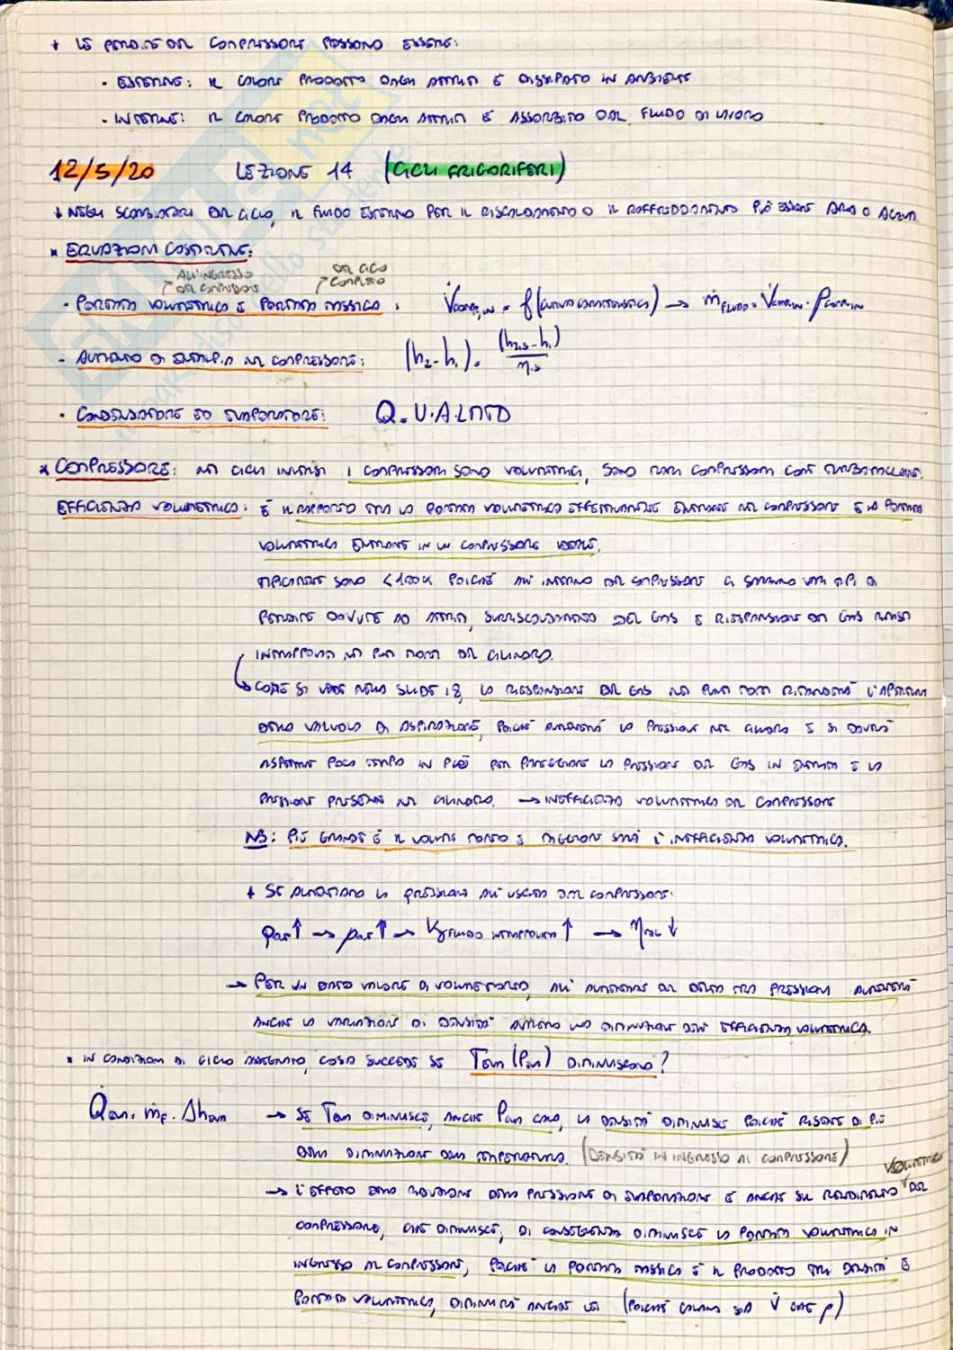 * LE PERDITE DEL COMPRESSORE POSSONO ESSERE:
· ESTERNE: IL CALORE PRODOTTO DAGLI ATTRITI È DISSIPATO IN AMBIENTE
· INTERNE: IL CALORE PRODOTTO DAGLI ATTRITI È ASSORBITO DAL FLUIDO DI LAVORO
12/5/20 LEZIONE 14 (CICLI FRIGORIFERI)
* NEGLI SCAMBIATORI DEL CICLO, IL FLUIDO ESTERNO PER IL RISCALDAMENTO O IL RAFFREDDAMENTO PUÒ ESSERE ARIA O ACQUA
* EQUAZIONI COSTITUTIVE:
ALL'INGRESSO DEL COMPRESSORE DEL CICLO COMPLETO
· PORTATA VOLUMETRICA E PORTATA MASSICA: V̇COMP,IN = f(CURVA CARATTERISTICA) → ṁFLUIDO = V̇COMP,IN · ρCOMP,IN
- AUMENTO DI ENTALPIA NEL COMPRESSORE: (h2-h1) = (h2,is-h1)/ηis
· CONDENSATORE ED EVAPORATORE: Q = U·A·LMTD
* COMPRESSORE: NEI CICLI INVERSI I COMPRESSORI SONO VOLUMETRICI, SONO RARI COMPRESSORI COME TURBOMACCHINE.
EFFICIENZA VOLUMETRICA: È IL RAPPORTO TRA LA PORTATA VOLUMETRICA EFFETTIVAMENTE ENTRANTE NEL COMPRESSORE E LA PORTATA
VOLUMETRICA ENTRANTE IN UN COMPRESSORE IDEALE.
TIPICAMENTE SONO <100% POICHÉ ALL'INTERNO DEL COMPRESSORE CI SARANNO VARI TIPI DI
PERDITE DOVUTE AD ATTRITI, SURRISCALDAMENTO DEL GAS E RIESPANSIONE DEL GAS RIMASTO
INTRAPPOLATO NEI PUNTI MORTI DEL CILINDRO.
COME SI VEDE NELLA SLIDE 18, LA RIESPANSIONE DEL GAS NEI PUNTI MORTI RITARDERÀ L'APERTURA
DELLA VALVOLA DI ASPIRAZIONE, POICHÉ AUMENTERÀ LA PRESSIONE NEL CILINDRO E SI DOVRÀ
ASPETTARE POCO TEMPO IN PIÙ PER PAREGGIARE LA PRESSIONE DEL GAS IN ENTRATA E LA
PRESSIONE PRESENTE NEL CILINDRO. → INEFFICIENZA VOLUMETRICA DEL COMPRESSORE
NB: PIÙ GRANDE È IL VOLUME MORTO E MAGGIORE SARÀ L'INEFFICIENZA VOLUMETRICA.
* SE AUMENTIAMO LA PRESSIONE ALL'USCITA DEL COMPRESSORE:
↑ → ↑ → FLUIDO INTRAPPOLATO ↑ → ηVOL ↓
→ PER UN DATO VALORE DI VOLUME MORTO, ALL'AUMENTARE DEL DELTA TRA PRESSIONI AUMENTERÀ
ANCHE LA VARIAZIONE DI DENSITÀ AVREMO UNA DIMINUZIONE DELL'EFFICIENZA VOLUMETRICA.
* IN CONDIZIONI DI CICLO ASSEGNATO, COSA SUCCEDE SE TEVA (PEVA) DIMINUISCONO?
Q̇EVA = ṁF · ΔhEVA → SE TEVA DIMINUISCE, ANCHE PEVA CALA, LA DENSITÀ DIMINUISCE POICHÉ RISENTE DI PIÙ
DELLA DIMINUZIONE DELLA TEMPERATURA. (DENSITÀ IN INGRESSO AL COMPRESSORE)
→ L'EFFETTO DELLA RIDUZIONE DELLA PRESSIONE DI EVAPORAZIONE È ANCHE SUL RENDIMENTO VOLUMETRICO DEL
COMPRESSORE, CHE DIMINUISCE, DI CONSEGUENZA DIMINUISCE LA PORTATA VOLUMETRICA IN
INGRESSO AL COMPRESSORE, POICHÉ LA PORTATA MASSICA È IL PRODOTTO TRA DENSITÀ E
PORTATA VOLUMETRICA, DIMINUIRÀ ANCHE LEI (POICHÉ CALANO SIA V̇ CHE ρ)